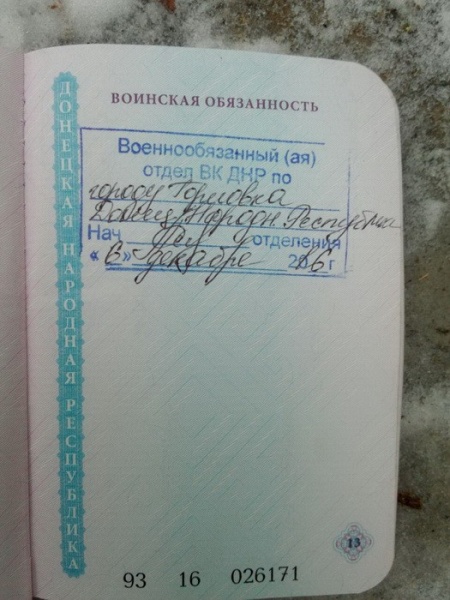 ВОИНСКАЯ ОБЯЗАННОСТЬ
ДОНЕЦКАЯ НАРОДНАЯ РЕСПУБЛИКА
Военнообязанный (ая)
отдел ВК ДНР по
городу Горловка
Народн. Республика
Нач отделения
« 6 » декабре 2016 г
13
93 16 026171